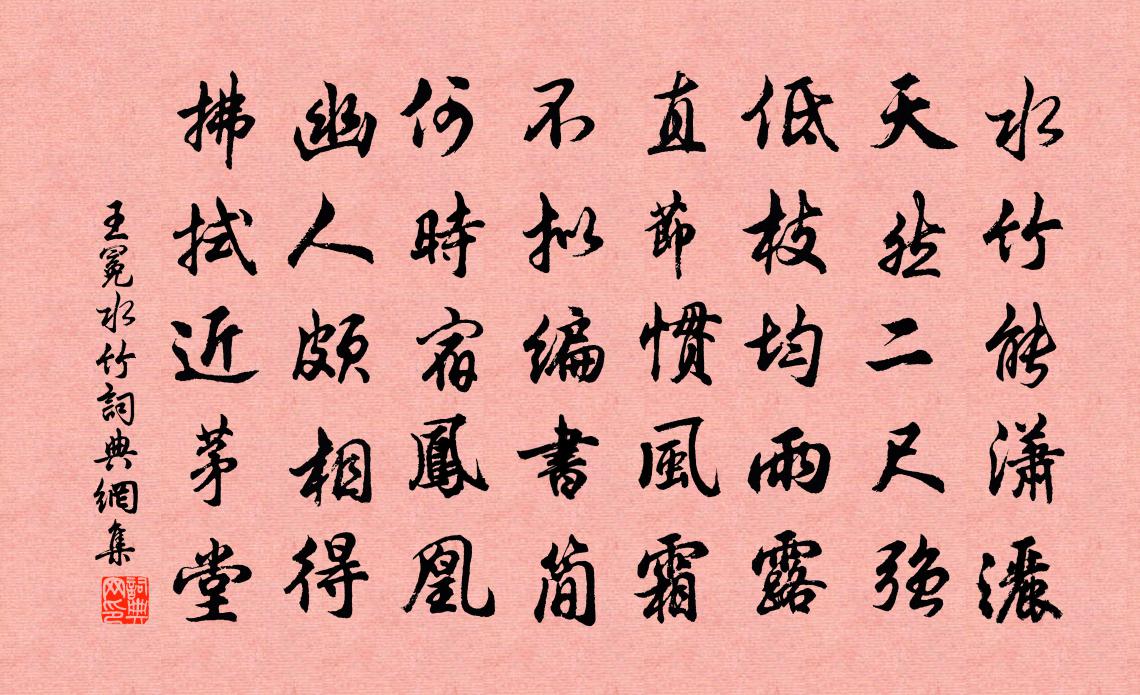 水竹能瀟灑
天然二尺強
低枝均雨露
直節慣風霜
不拟編書简
何時宿鳳凰
幽人頗相得
拂拭近茅堂
王冕水竹詞典網集
詞典網印